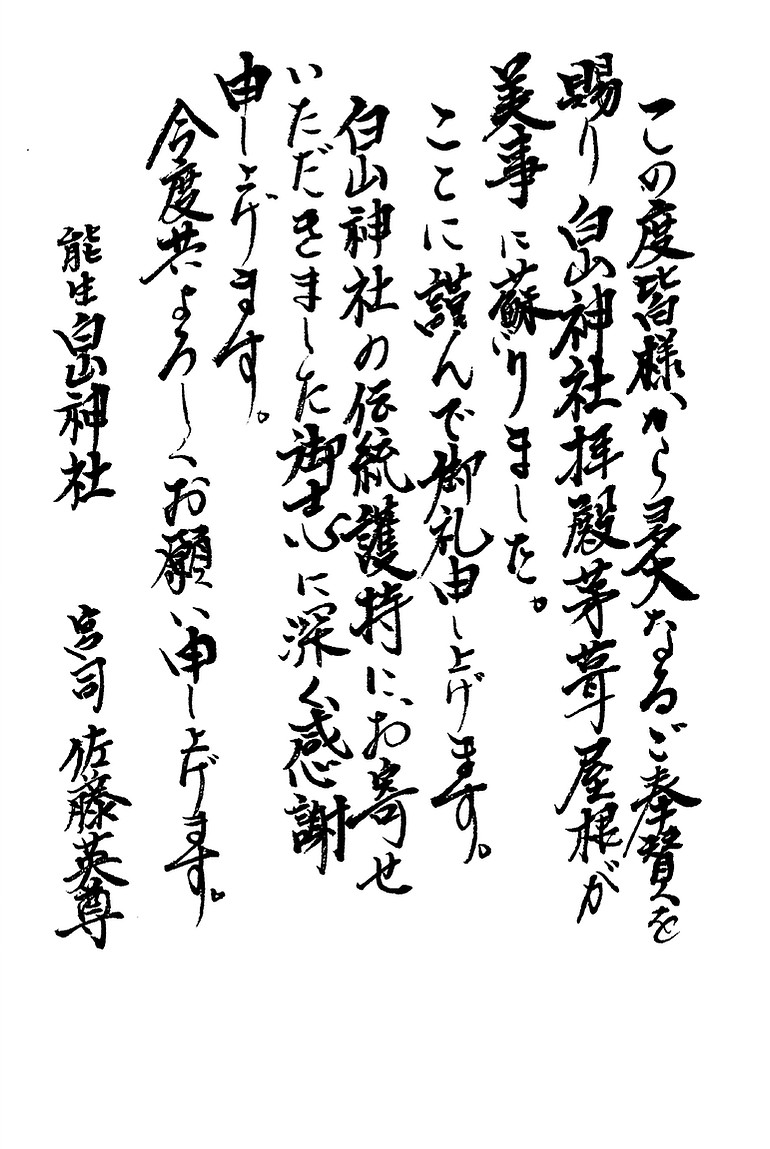 この度皆様から多大なるご奉賛を
賜り白山神社拝殿茅葺屋根が
美事に蘇りました。
ここに謹んで御礼申し上げます。
白山神社の伝統護持に、お寄せ
いただきました御志に深く感謝
申し上げます。
今度共よろしくお願い申し上げます。
能生白山神社　宮司 佐藤英尊